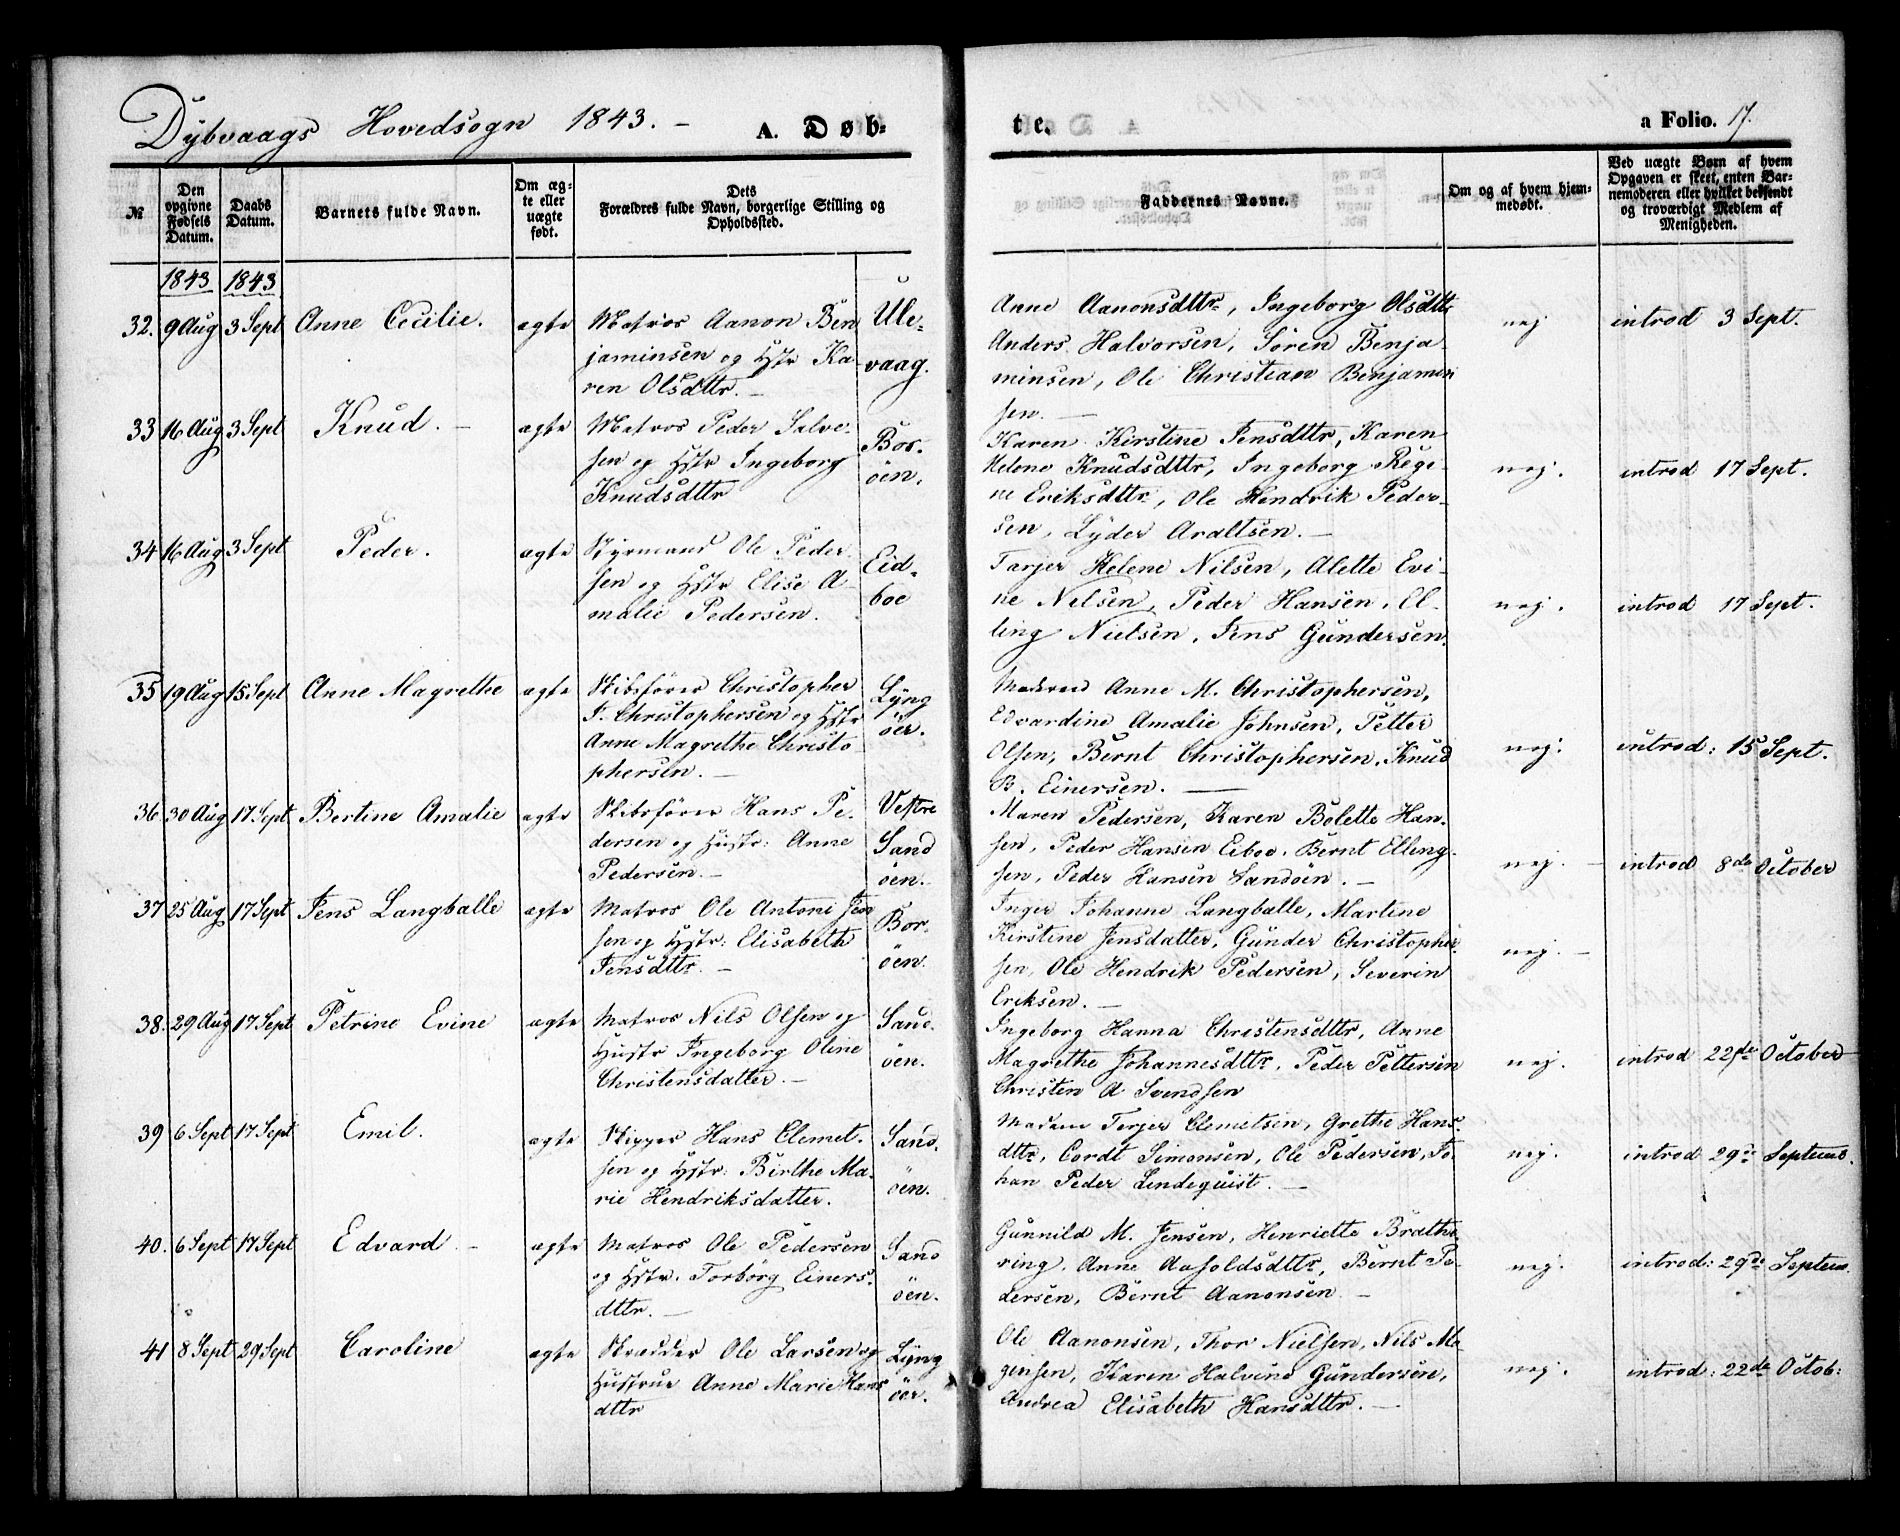 Dybvaags Hovedsogn 1843. – A. Døb-
te. a Folio. 17.
№
Den opgivne Fødsels Datum.
Daabs Datum.
Barnets fulde Navn.
Om ægte eller uægte født.
Dets Forældres fulde Navn, borgerlige Stilling og Opholdssted.
Faddernes Navne.
Om og af hvem hjemmedøbt.
Ved uægte Børn af hvem Opgaven er skeet, enten Barnemoderen eller hvilket bekjendt og troværdigt Medlem af Menigheden.
1843 1843
32. 9 Aug 3 Sept Anne Cecilie. ægte Matros Aanon Ben
jaminsen og Hstr Ka
ren Olsdttr. –
Ule-
vaag.
Anne Aanonsdttr, Ingeborg Olsdttr
Anders Halvorsen, Søren Benja-
minsen, Ole Christian Benjamin
sen. –
nej introd 3 Sept.
33 16 Aug 3 Sept Knud. – ægte Matros Peder Salve-
sen og Hstr Ingeborg
Knudsdttr
Bor-
öen.
Karen Kirstine Jensdttr, Karen
Helene Knudsdttr, Ingeborg Rege-
ne Eriksdttr, Ole Hendrik Peder-
sen, Lyder Araltsen. –
nej. introd 17 Sept.
34 16 Aug 3 Sept Peder. ægte Styrmand Ole Peder
sen og Hstr Elise A-
malie Pedersen.
Eid-
boe
Tarjer Helene Nilsen, Alette Evi-
ne Nelsen, Peder Hansen, El-
ling Nielsen, Jens Gundersen.
nej. introd 17 Sept.
35 19 Aug 15 Sept Anne Magrethe ægte Skibsfører Christopher
J. Christophersen og Hstr
Anne Magrethe Christo
phersen. –
Lyng
öer.
Anne M. Christophersen,
Edvardine Amalie Johnsen, Petter
Olsen, Bernt Christophersen, Knud
B. Einersen. –
nej. introd: 15 Sept.
36 30 Aug 17 Sept Bertine Amalie ægte Skibsfører Hans Pe-
dersen og Hustr: Anne
Pedersen. –
Vestre
Sand
öen.
Maren Pedersen, Karen Bolette Han-
sen, Peder Hansen Eiboe, Bernt Elling-
sen, Peder Hansen Sandöen. –
nej. – introd 8de October
37 25 Aug 17 Sept Jens Langballe ægte Matros Ole Antoni Jen
sen og Hstr: Elisabeth
Jensdttr. –
Bor-
öen.
Inger Johanne Langballe, Martine
Kirstine Jensdatter, Gunder Christopher
sen, Ole Hendrik Pedersen, Severin
Eriksen. –
nej. –
38. 29 Aug 17 Sept Petrine Evine ægte Matros Nils Olsen og
Hustr Ingeborg Oline
Christensdatter. –
Sand.
öen.
Ingeborg Hanna Christensdttr, Anne
Magrethe Johannesdttr, Peder Pettersen
Christen A Svendsen
nej. introd 22de October
39 6 Sept 17 Sept Emil. ægte Skipper Hans Clemet-
sen og Hstr: Birthe Ma-
rie Hendriksdatter.
Sand.
öen.
Madam Terjer Clemetsen, Grethe Hans-
dttr, Cordt Simonsen, Ole Pedersen, Jo-
han Peder Lindequist. –
nej. introd 29de Septemb.
40. 6 Sept 17 Sept Edvard. – ægte Matros Ole Pedersen
og Hstr. Torborg Einers-
dttr. –
Sand
öen.
Gunnild M. Jensen, Henriette Brathe-
ring, Anne Aasoldsdttr, Bernt Pe-
dersen, Bernt Aanonsen –
nej. introd: 29de Septem.
41 8 Sept 29 Sept Caroline ægte Skrædder Ole Larsen og
Hustrue Anne Marie Hans
dttr
Lyng
öer.
Ole Aanonsen, Thor Nielsen, Nils Mo
gensen, Karen Halvine Gundersen,
Andrea Elisabeth Hansdttr. –
nej. introd: 22de Octob: